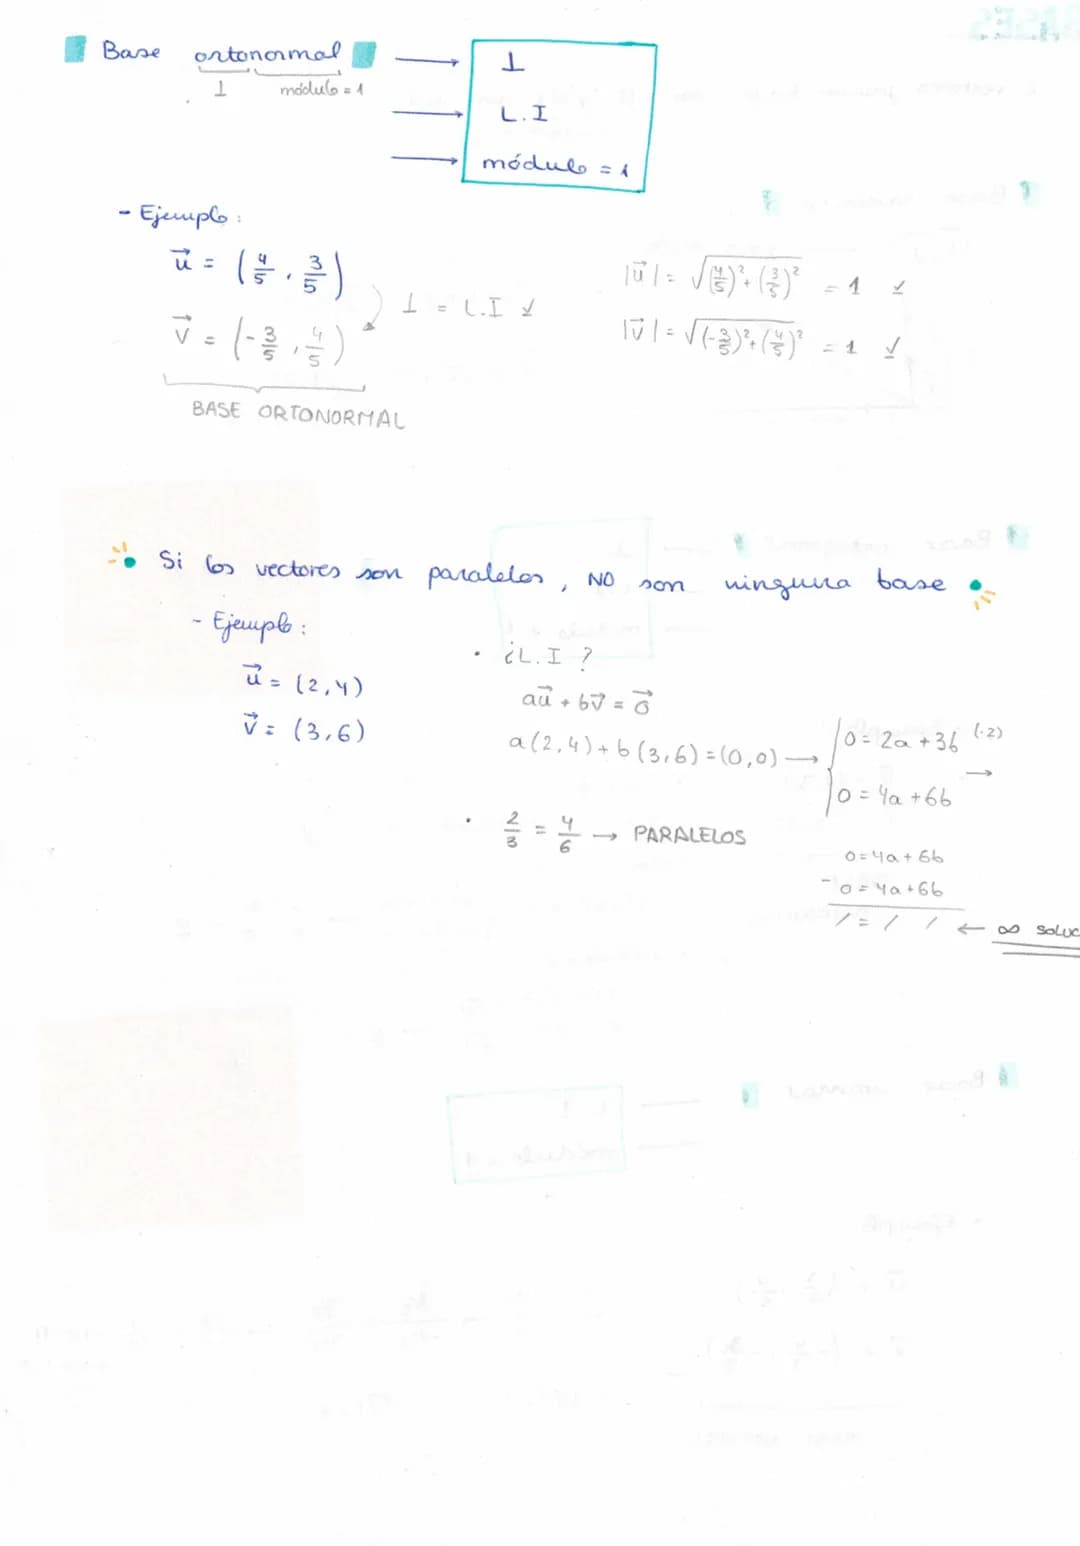 Base ortonormal → ⊥
⊥ módulo = 1
→ L.I
→ módulo = 1
- Ejemplo:
u⃗ = (4/5, 3/5)
v⃗ = (-3/5, 4/5)
⊥ = L.I ✓
BASE ORTONORMAL
|u⃗| = √((4/5)² + (3/5)²) = 1 ✓
|v⃗| = √((-3/5)² + (4/5)²) = 1 ✓
Si los vectores son paralelos, NO son ninguna base
- Ejemplo:
u⃗ = (2,4)
v⃗ = (3,6)
• ¿L.I?
au⃗ + bv⃗ = 0⃗
a(2,4) + b(3,6) = (0,0) →
0 = 2a + 3b (·2) →
0 = 4a + 6b
• 2/3 = 4/6 → PARALELOS
0 = 4a + 6b
- 0 = 4a + 6b
/ = / / ← ∞ soluc